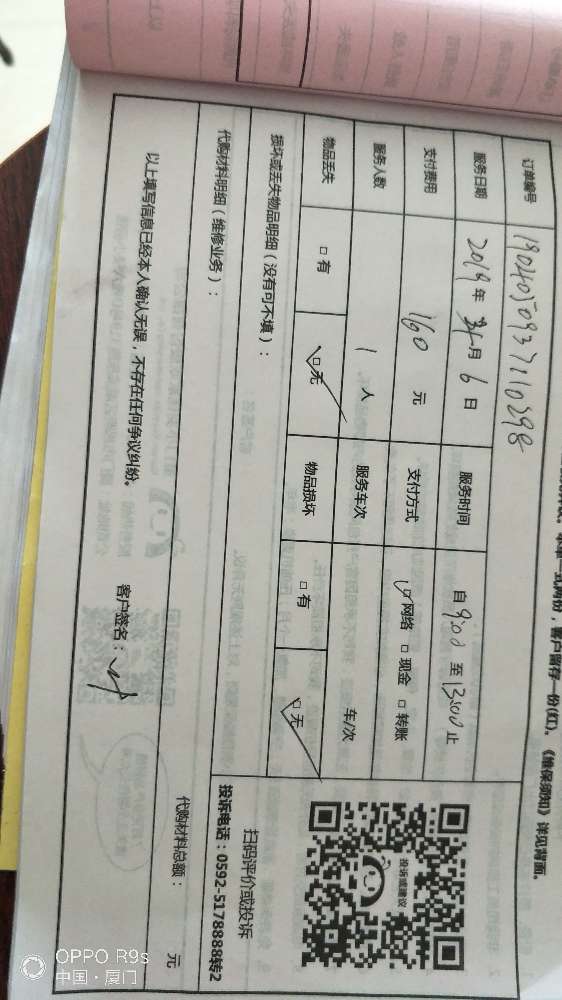 单一式两份，客户留存一份(红)。《维保须知》详见背面。
订单编号 190405093711029８
服务日期 2019年 月 6 日 服务时间 自 9:00 至 13:00 止
支付费用 160 元 支付方式 ☑网络 □现金 □转账
服务人数 1 人 服务车次 车/次
物品丢失 □有 ☑无 物品损坏 □有 ☑无
投诉或建议
扫码评价或投诉
投诉电话：0592-5178888转2
损坏或丢失物品明细（没有可不填）：
代购材料明细（维修业务）：
代购材料总额： 元
以上填写信息已经本人确认无误，不存在任何争议纠纷。 客户签名：
OPPO R9s
中国·厦门